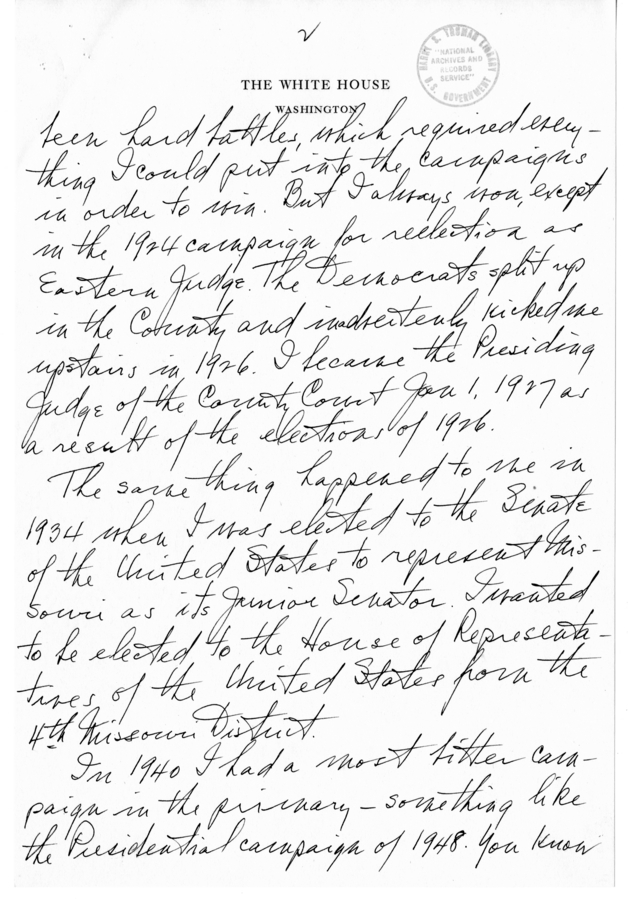 2
HARRY S. TRUMAN LIBRARY
"NATIONAL
ARCHIVES AND
RECORDS
SERVICE"
U.S. GOVERNMENT
THE WHITE HOUSE
WASHINGTON
been hard battles, which required every-
thing I could put into the campaigns
in order to win. But I always won, except
in the 1924 campaign for reelection as
Eastern Judge. The Democrats split up
in the County and inadvertenly kicked me
upstairs in 1926. I became the Presiding
Judge of the County Court Jan 1, 1927 as
a result of the elections of 1926.
The same thing happened to me in
1934 when I was elected to the Senate
of the United States to represent Mis-
souri as its Junior Senator. I wanted
to be elected to the House of Representa-
tives of the United States from the
4th Missouri District.
In 1940 I had a most bitter cam-
paign in the primary – something like
the Presidential campaign of 1948. You know